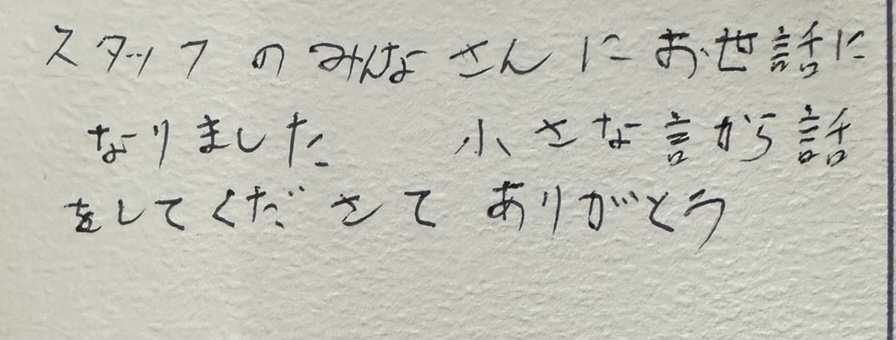 スタッフのみんなさんにお世話に
なりました　小さな言から話
をしてくださて ありがとう